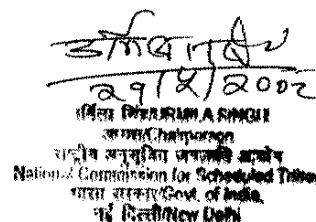 29/5/2002
उर्मिला सिंह/URMILA SINGH
अध्यक्ष/Chairperson
राष्ट्रीय अनुसूचित जनजाति आयोग
National Commission for Scheduled Tribes
भारत सरकार/Govt. of India,
नई दिल्ली/New Delhi